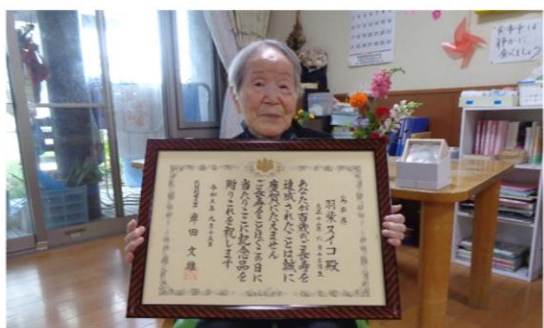 羽柴スイコ殿
あなたが百歳のご長寿を
達成されたことは誠に
慶賀にたえません
ご長寿をことほぐこの日に
当たりここに記念品を
贈りこれを祝します
令和五年九月十五日
内閣総理大臣 岸田文雄
お食事は
静かに
食べましょう